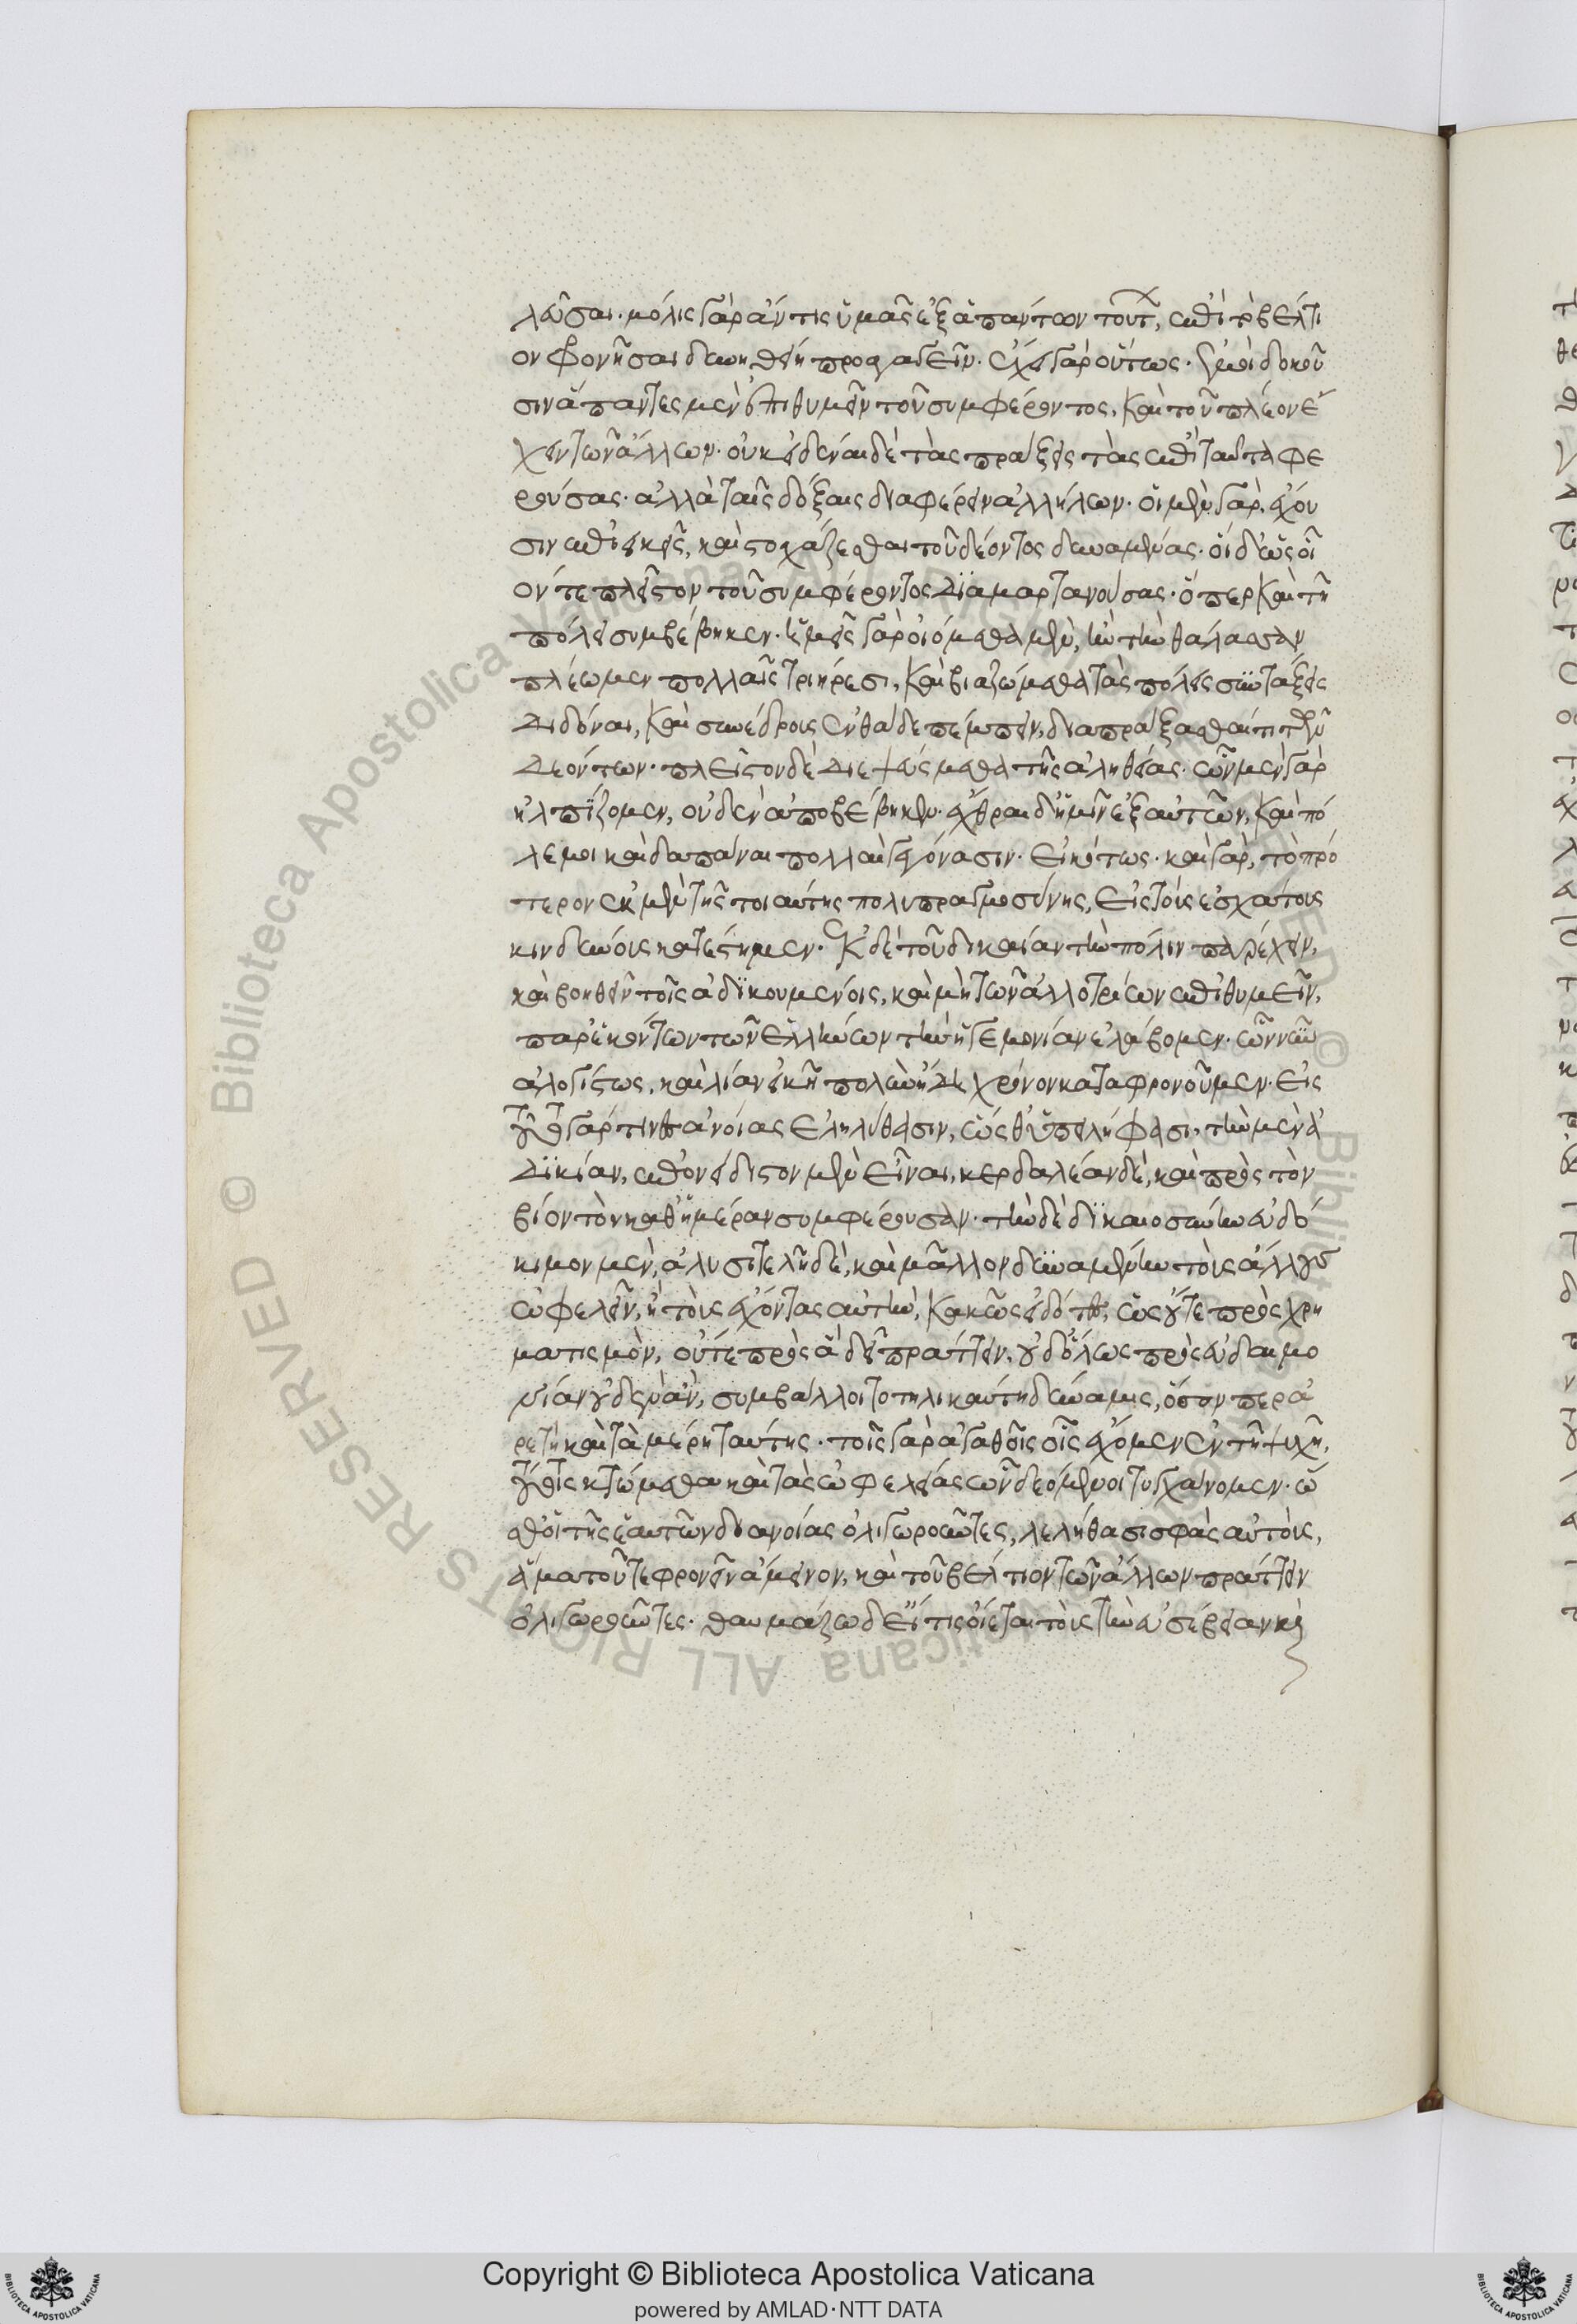 λεῦσαι. μόλις γὰρ ἄν τις ὑμᾶς ἐξ ἁπάντων τούτων, ἐπὶ τὸ βέλτι
ον φρονῆσαι δυνηθείη προαγαγεῖν. ἔχει γὰρ οὕτως. ἐμοὶ δοκοῦ
σιν ἅπαντες μὲν ἐπιθυμεῖν τοῦ συμφέροντος, καὶ τοῦ πλέον ἔ
χειν τῶν ἄλλων. οὐκ εἰδέναι δὲ τὰς πράξεις τὰς ἐπὶ ταῦτα φε
ρούσας. ἀλλὰ ταῖς δόξαις διαφέρειν ἀλλήλων. οἱ μὲν γὰρ, ἔχου
σιν ἐπιεικεῖς, καὶ στοχάζεσθαι τοῦ δέοντος δυναμένας. οἱ δ' ὡς οἷ
όν τε πλεῖστον τοῦ συμφέροντος διαμαρτανούσας. ὅπερ καὶ τῇ
πόλει συμβέβηκεν. ἡμεῖς γὰρ οἰόμεθα μὲν, ἢν τὴν θάλασσαν
πλέωμεν πολλαῖς τριήρεσι, καὶ βιαζώμεθα τὰς πόλεις συντάξεις
διδόναι, καὶ συνέδρους ἐνθάδε πέμπειν, διαπράξασθαί τι τῶν
δεόντων. πλεῖστον δὲ διεψεύσμεθα τῆς ἀληθείας. ὧν μὲν γὰρ
ἠλπίζομεν, οὐδὲν ἀποβέβηκεν. ἔχθραι δ' ἡμῖν ἐξ αὐτῶν, καὶ πό
λεμοι καὶ δαπάναι πολλαὶ γεγόνασιν. εἰκότως. καὶ γὰρ, τὸ πρό
τερον ἐκ μὲν τῆς τοιαύτης πολυπραγμοσύνης, εἰς τοὺς ἐσχάτους
κινδύνους κατέστημεν. ἐκ δὲ τοῦ δικαίαν τὴν πόλιν παρέχειν,
καὶ βοηθεῖν τοῖς ἀδικουμένοις, καὶ μὴ τῶν ἀλλοτρίων ἐπιθυμεῖν,
παρ' ἑκόντων τῶν ἑλλήνων τὴν ἡγεμονίαν ἐλάβομεν. ὧν νῦν
ἀλογίστως, καὶ λίαν εἰκῇ πολὺν ἤδη χρόνον καταφρονοῦμεν. εἰς
τοῦτο γάρ τινες ἀνοίας ἐληλύθασιν, ὥσθ' ὑπειλήφασι, τὴν μὲν ἀ
δικίαν, ἐπονείδιστον μὲν εἶναι, κερδαλέαν δὲ, καὶ πρὸς τὸν
βίον τὸν καθ' ἡμέραν συμφέρουσαν. τὴν δὲ δικαιοσύνην εὐδό
κιμον μὲν, ἀλυσιτελῆ δὲ, καὶ μᾶλλον δυναμένην τοὺς ἄλλους
ὠφελεῖν, ἢ τοὺς ἔχοντας αὐτὴν, κακῶς εἰδότες, ὡς οὔτε πρὸς χρη
ματισμὸν, οὔτε πρὸς ἃ δεῖ πράττειν, οὐδ' ὅλως πρὸς εὐδαιμο
νίαν οὐδὲν ἂν, συμβάλλοιτο τηλικαύτη δύναμις, ὅσην περ ἀ
ρετὴ καὶ τὰ μέρη ταύτης. τοῖς γὰρ ἀγαθοῖς οἷς ἔχομεν ἐν τῇ ψυχῇ,
τούτοις κτώμεθα καὶ τὰς ὠφελείας ὧν δεόμενοι τυγχάνομεν. ὥ
σθ' οἱ τῆς ἑαυτῶν διανοίας ὀλιγωροῦντες, λελήθασι σφὰς αὐτοὺς,
ἅμα τοῦ τε φρονεῖν ἄμεινον, καὶ τοῦ βέλτιον τῶν ἄλλων πράττειν
ὀλιγωροῦντες. θαυμάζω δ' εἴ τις οἴεται τοὺς τὴν εὐσέβειαν καὶ
Copyright © Biblioteca Apostolica Vaticana
powered by AMLAD·NTT DATA